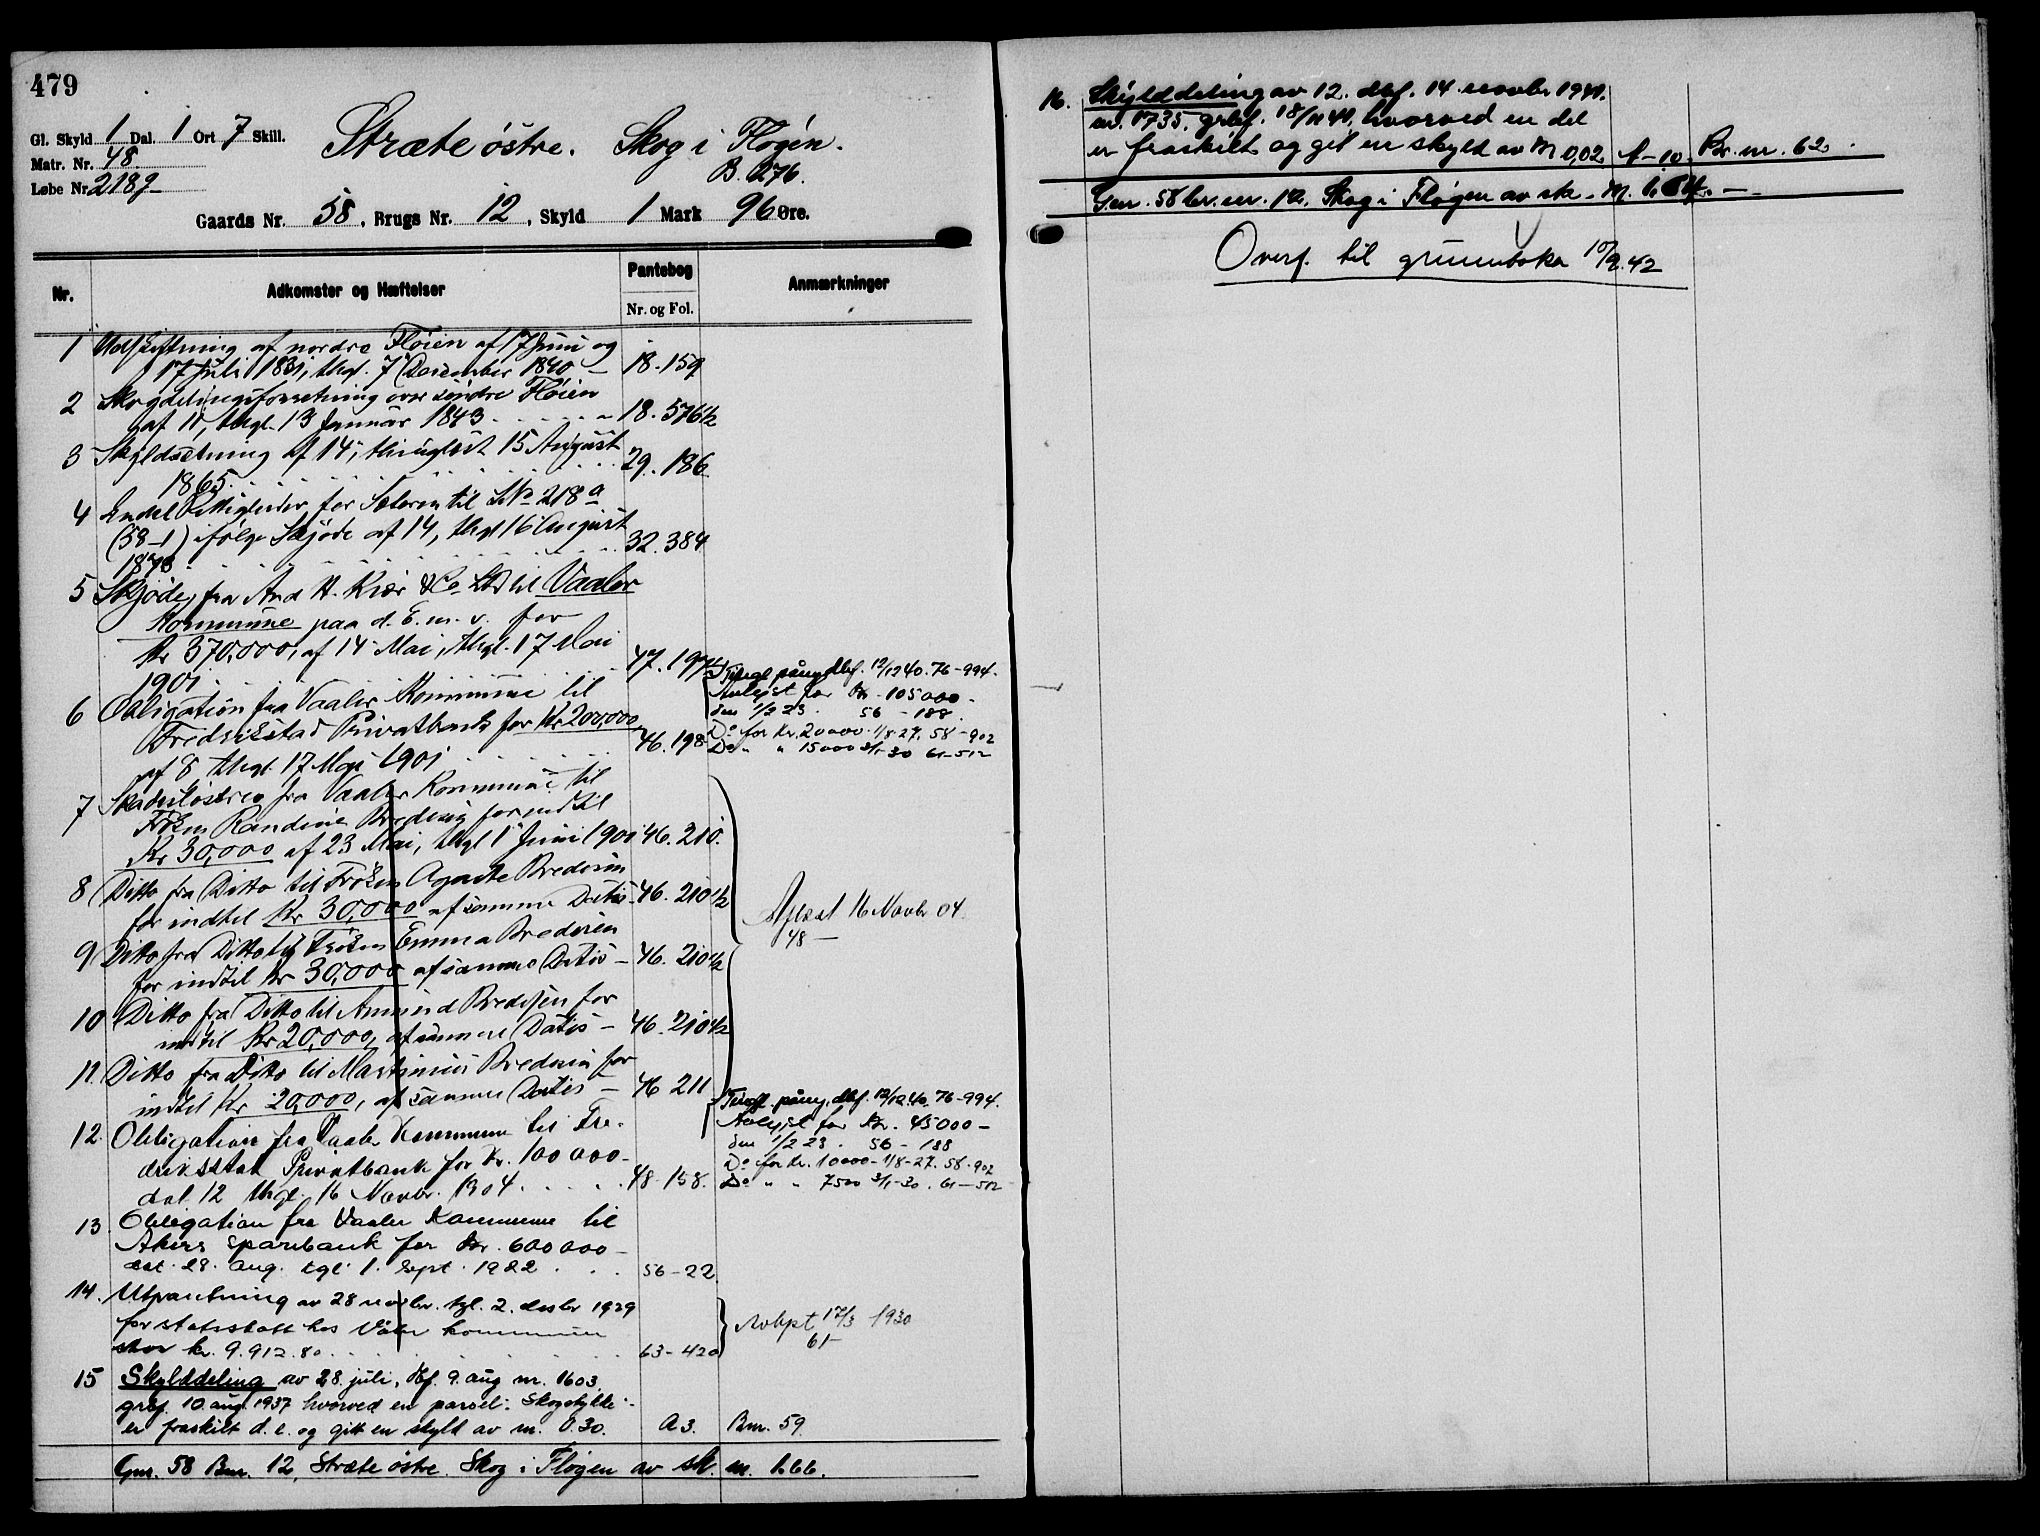 479
Gl. Skyld 1 Dal. 1 Ort 7 Skill.
Matr. Nr. 48.
Løbe Nr. 218g
Stræte østre. Skog i Fløgen.
B. 276.
Gaards Nr. 58, Brugs Nr. 12, Skyld 1 Mark 96 Øre.
Nr. Adkomster og Hæftelser Pantebog Nr. og Fol. Anmærkninger
1 Udskiftning af nordre Fløien af 17 Juni og
17 Juli 1831, thgl. 7 December 1840 – 18. 159
2 Skogdelingsforretning over søndre Fløien
af 11, thgl. 13 Januar 1843 18. 576½
3 Skyldsætning af 14, thinglæst 15 August
1865 29. 186.
4 Endel Rettigheder for Sæteren til LNo 218a
(58-1) ifølge Skjøde af 14, thgl 16 August
32. 384
5 Skjøde fra And H. Kiær & Co Ltd til Vaaler
Kommune paa d. E. m. v. for
Kr 370,000, af 14 Mai, thgl. 17 Mai
1901. 47. 197½
6 Obligation fra Vaaler Kommune til
Fredrikstad Privatbank for Kr 200,000
af 8, thgl. 17 Mai 1901 46. 198
Tingl. påny, dbf. 12/12 40. 76-994.
Avlyst for Kr. 105000-
den 1/2 23. 56 - 188.
Do for Kr. 20000. 1/8-27. 58-902
Do " " 15000 3/1-30 61-512
7 Skadesløsbrev fra Vaaler Kommune til
Frøken Randine Bredesen for indtil
Kr 30,000 af 23 Mai, thgl 1 Juni 1901 46. 210.
8 Ditto fra Ditto til Frøken Agnete Bredesen
for indtil Kr 30,000 af samme Datis 46. 210½
9 Ditto fra Ditto til Frøken Emma Bredesen
for indtil Kr 30,000 af samme Datis – 46. 210½
10 Ditto fra Ditto til Amund Bredesen for
indtil Kr 20,000, af samme Datis – 46. 210½
11. Ditto fra Ditto til Martinius Bredesen for
indtil Kr 20,000, af samme Datis – 46 211
Aflæst 16 Novbr 04.
48 –
12. Obligation fra Vaaler Kommune til Fre-
driksstad Privatbank for Kr. 100 000-
dat. 12 thgl. 16 Novbr. 1904 48. 158.
Tingl. påny, dbf. 12/12 40. 76-994.
Avlyst for Kr. 45000-
den 1/2 23. 56 - 188
Do for Kr. 10000- 1/8-27. 58-902
Do " " 7500 3/1-30. 61-512
13. Obligation fra Vaaler Kommune til
Akers sparebank for Kr. 600000-
dat. 29. aug. tgl. 1. sept. 1922 56-22
14. Utpantning av 28 novbr. tgl. 2. desbr 1929
for statsskatt hos Våler kommune
stor kr. 9.912.80 63-420
Avlyst 17/3 1930
61-
15 Skylddeling av 28. juli, dbf. 9. aug nr. 1603
grbf. 10 aug. 1937 hvorved en parsel: Skogstykke
er fraskilt d. e. og gitt en skyld av m. 0.30. A3. Bnr. 59.
Gnr. 58 Bnr. 12, Stræte østre. Skog i Fløgen av sk. m. 1.66.
16. Skylddeling av 12. dbf. 14 novbr. 1941.
nr. 1735. grbf. 18/11 41, hvorved en del
er fraskilt og git en skyld av M 0,02. A-10. Br. nr. 62.
Gnr. 58 br. nr. 12. Skog i Fløgen av sk. M. 1.64. –
Overf. til grunnboka 10/9.42